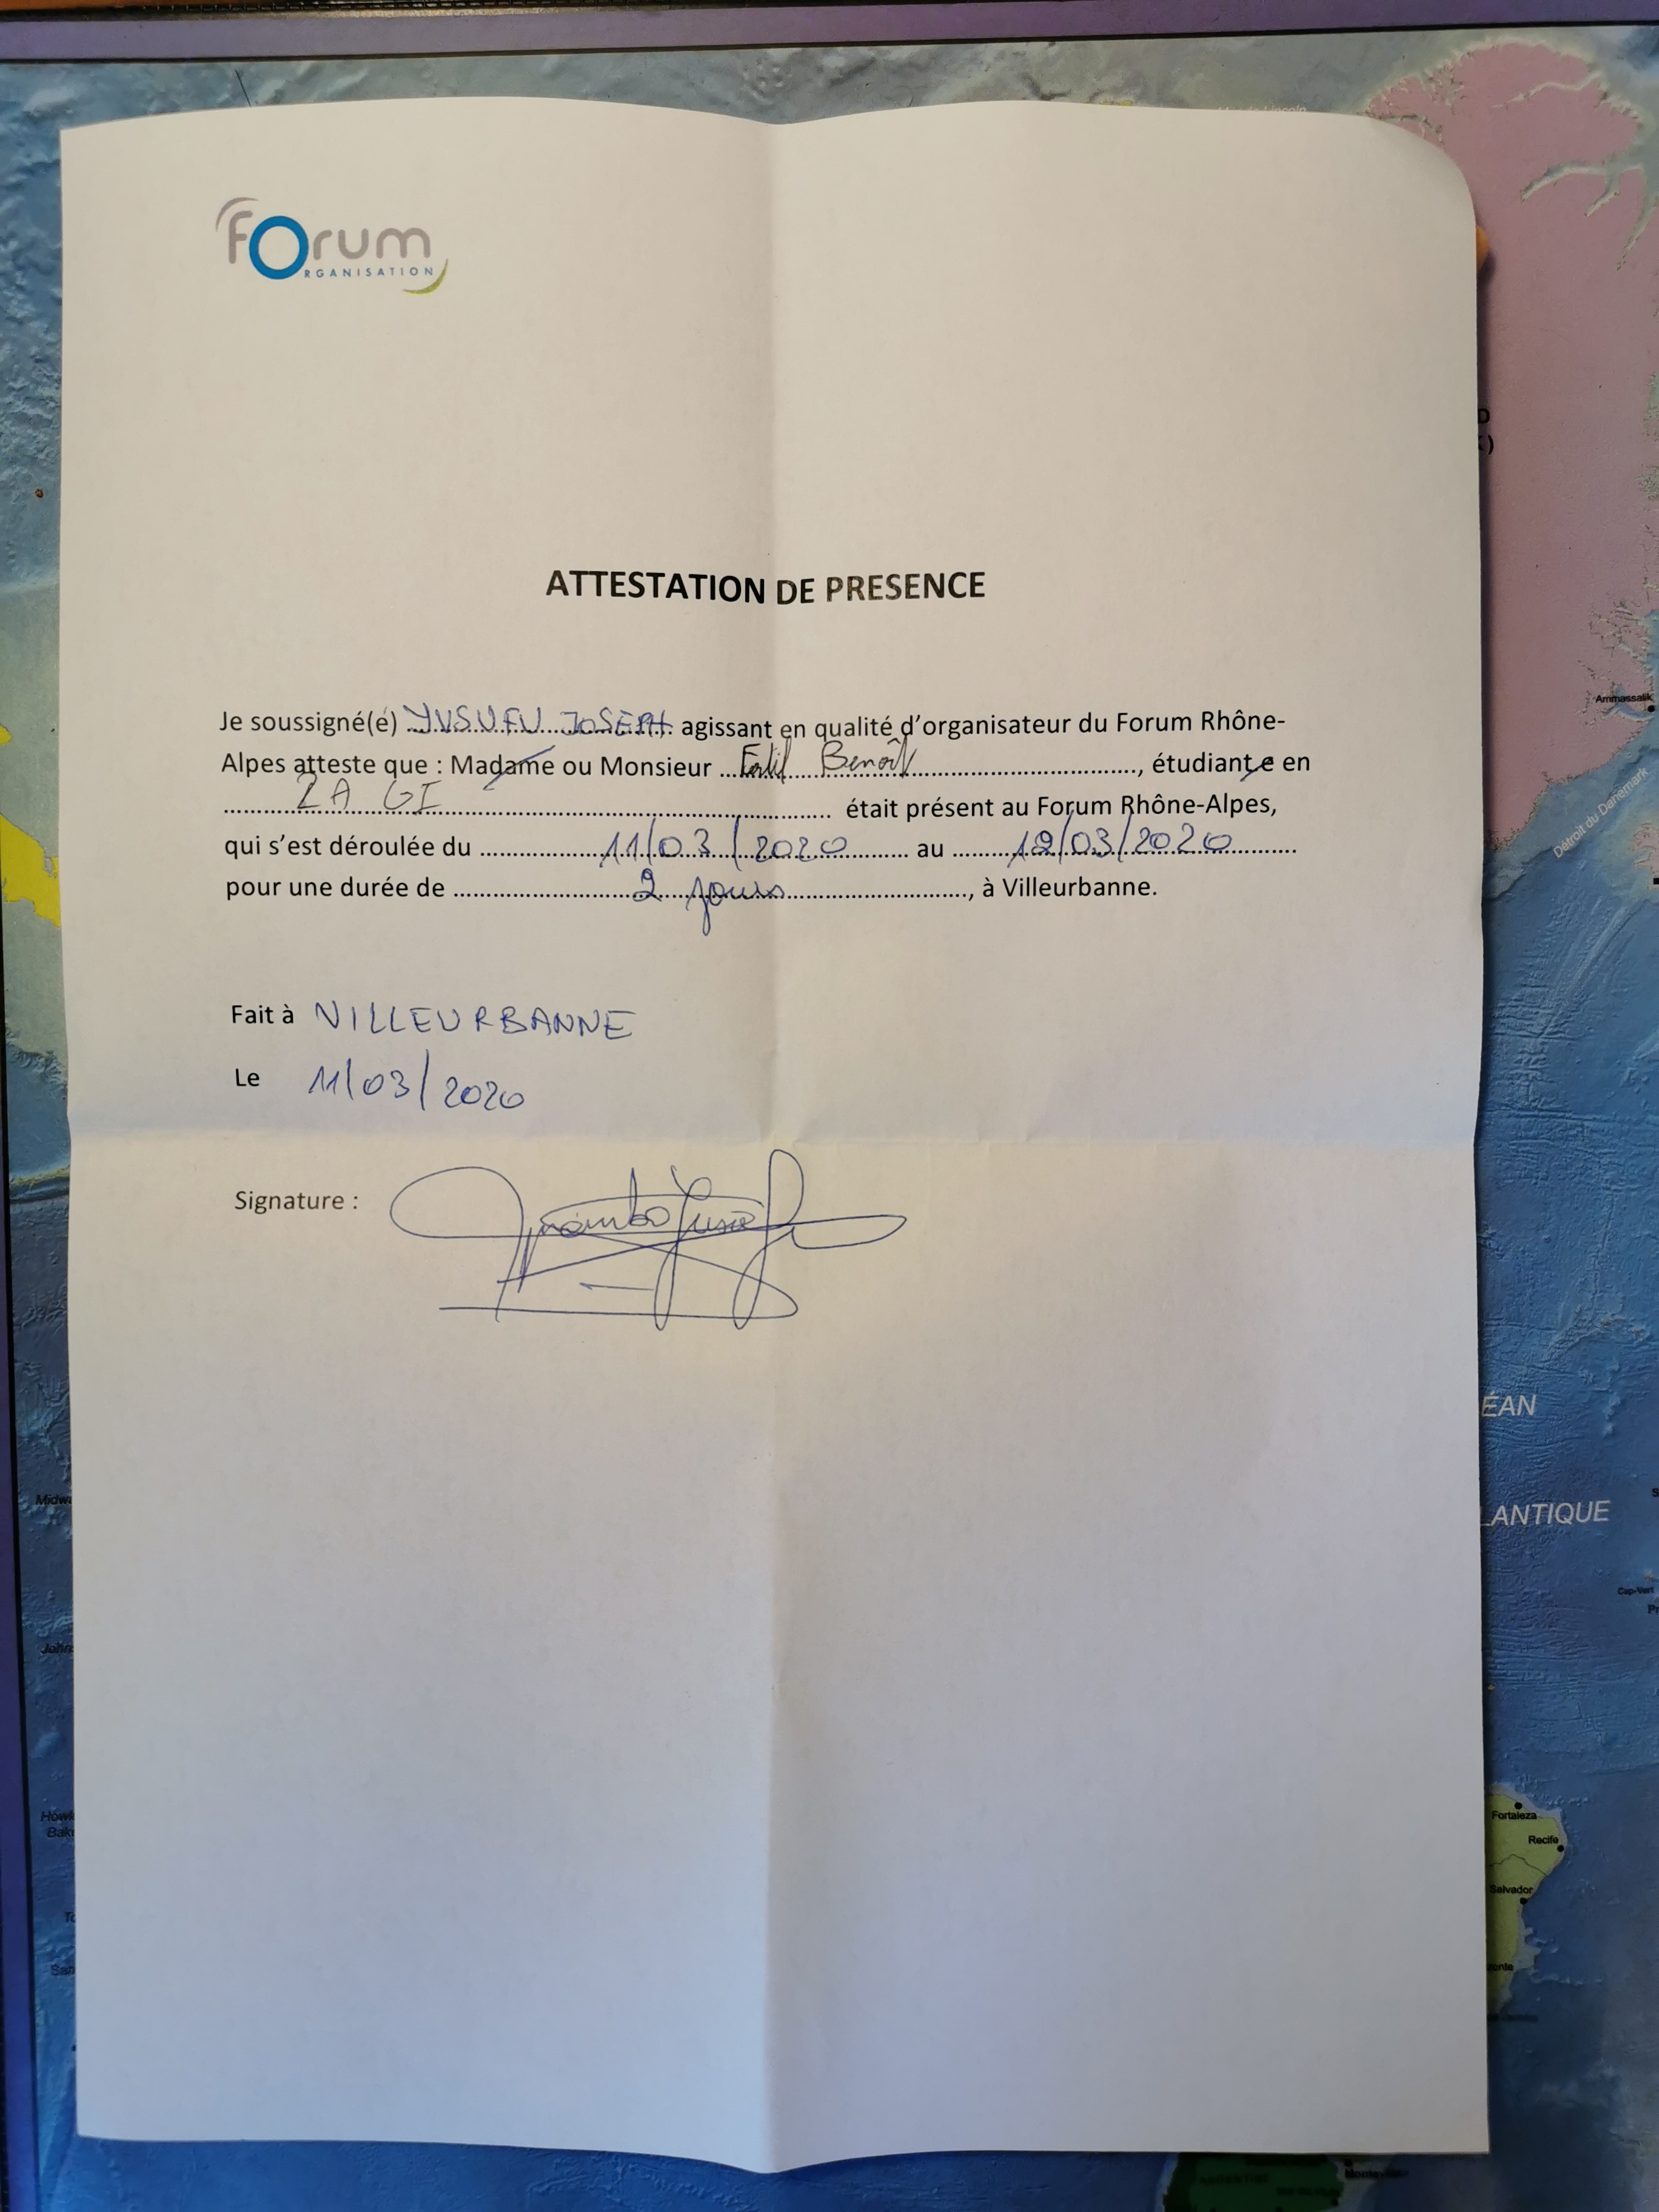 forum
ORGANISATION
ATTESTATION DE PRESENCE
Je soussigné(e) YUSUFU JOSEPH agissant en qualité d'organisateur du Forum Rhône-
Alpes atteste que : Madame ou Monsieur ... Benoît ..., étudiante en
2A GI ... était présent au Forum Rhône-Alpes,
qui s'est déroulée du ... 11/03/2020 ... au ... 12/03/2020 ...
pour une durée de ... 2 jours ..., à Villeurbanne.
Fait à VILLEURBANNE
Le 11/03/2020
Signature :
Ammassalik
Détroit du Danemark
ÉAN
LANTIQUE
Cap-Vert
Fortaleza
Recife
Salvador